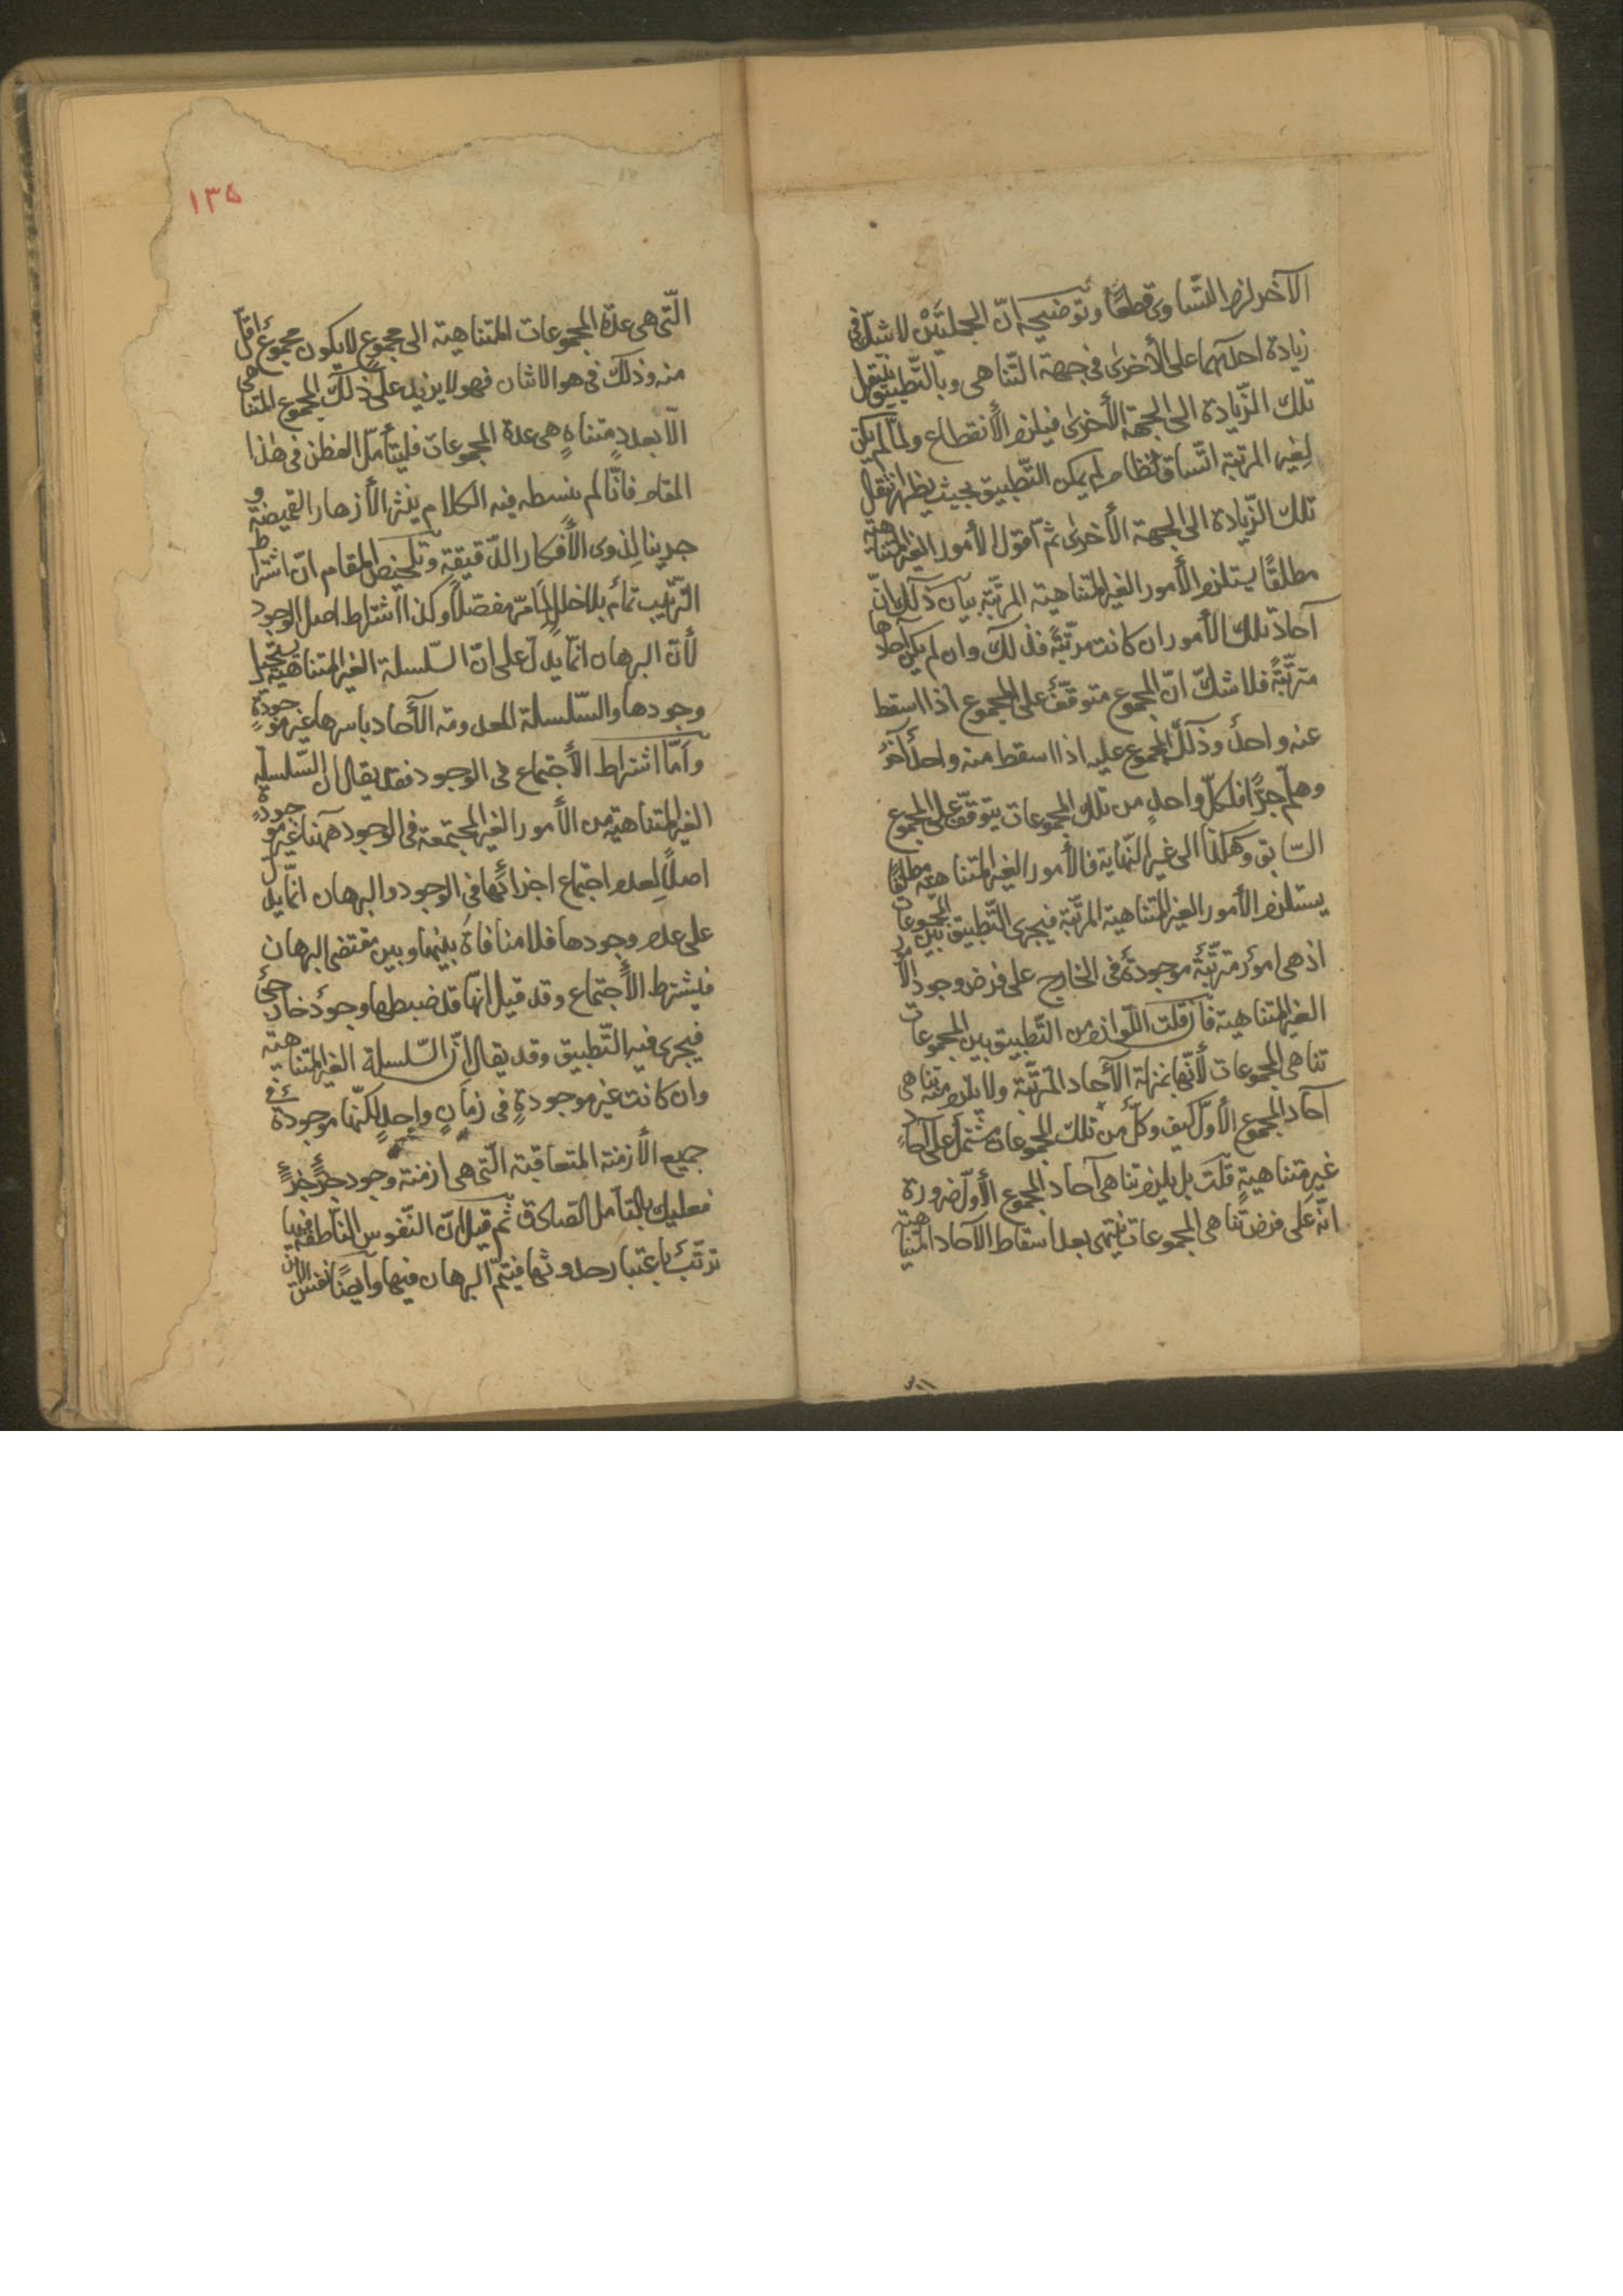 الآخر لزم التّساوى قطعًا وتوضيحه انّ الجملتَيْن لا شكّ فى
زيادة احدٰيهما على الأخرٰى فى جهة التّناهى وبالتّطبيق ينتقل
تلك الزّيادة الى الجهة الأخرٰى فيلزم الأنقطاع ولمّا لم يكن
لِغير المرتبة اتّساق نظام لم يمكن التّطبيق بحيث يظهر انتقال
تلك الزّيادة الى الجهة الأخرٰى ثمّ اقول الأمور الغير المتناهية
مطلقًا يستلزم الأمور الغير المتناهية المرتّبة بيان ذٰلك انّ
آحاد تلك الأمور ان كانت مرتّبةً فذلك وان لم يكن آحادها
مترتّبةً فلا شكّ انّ المجموع متوقّفٌ على المجموع اذا اسقط
عنه واحدٌ وذٰلك المجموع عليه اذا اسقط منه واحدٌ آخرُ
وهلّم جرًّا فلكلّ واحدٍ من تلك المجموعات يتوقّف على المجموع
السّابق وهكذا الى غير النّهاية فالأمور الغير المتناهية مطلقًا
يستلزم الأمور الغير المتناهية المرتّبة فيجرى التّطبيق بين المجموعات
اذ هى امورٌ مترتّبةٌ موجودةٌ فى الخارج على فرض وجود الأمور
الغير المتناهية فان قلت اللّوازم من التّطبيق بين المجموعات
تناهى المجموعات لأنّها بمنزلة الآحاد المترتّبة ولا يلزم منه تناهى
آحاد المجموع الأوّل كيف وكلٌّ من تلك المجموعات مشتملٌ على آحادٍ
غير متناهيةٍ قلت بل يلزم تناهى آحاد المجموع الأوّل ضرورة
انّه على فرض تناهى المجموعات ينتهى بعد اسقاط الآحاد المتناهية
١٣٥
الّتى هى عدّة المجموعات المتناهية الى مجموعٍ لا يكون مجموعٌ اقلّ
منه وذلك فى هو الاثنان فهو لا يزيد على ذٰلك المجموع المتناهى
الّا بعددٍ متناهٍ هى عدة المجموعات فليتأمّل الفطن فى هٰذا
المقام فانّا لم نبسطه فيه الكلام ينثر الأزهار القميضة و
جدينا لِذوى الأفكار الدّقيقة وتلخيص المقام انّ اشتراط
التّرتيب تامٌّ بلا خللٍ لِمَا مرّ مفصّلًا وكذا اشتراط اصل الوجود
لأنّ البرهان انّما يدلّ على انّ السّلسلة الغير المتناهية يستحيل
وجودها والسّلسلة المعدومة الآحاد باسرها غير موجودةٍ
وامّا اشتراط الأجتماع فى الوجود فقد يقال انّ السّلسلة
الغير المتناهية من الأمور الغير المجتمعة فى الوجود هٰهنا غير موجودةٍ
اصلًا لِعدم اجتماع اجزائها فى الوجود والبرهان انّما يدلّ
على عدم وجودها فلا منافاة بينها وبين مقتضى البرهان
فيشترط الأجتماع وقد قيل انّها قد ضبطها وجودٌ خارجىٌّ
فيجرى فيه التّطبيق وقد يقال انّ السّلسلة الغير المتناهية
وان كانت غير موجودةٍ فى زمانٍ واحدٍ لكنّها موجودةٌ فى
جميع الأزمنة المتعاقبة الّتى هى ازمنة وجود جزءٍ جزءٍ
فعليك بالتأمل الصادق ثم قيل انّ النّفوس النّاطقة فيها
ترتّبٌ باعتبار حدوثها فيتمّ البرهان فيها وايضًا نفس الابن